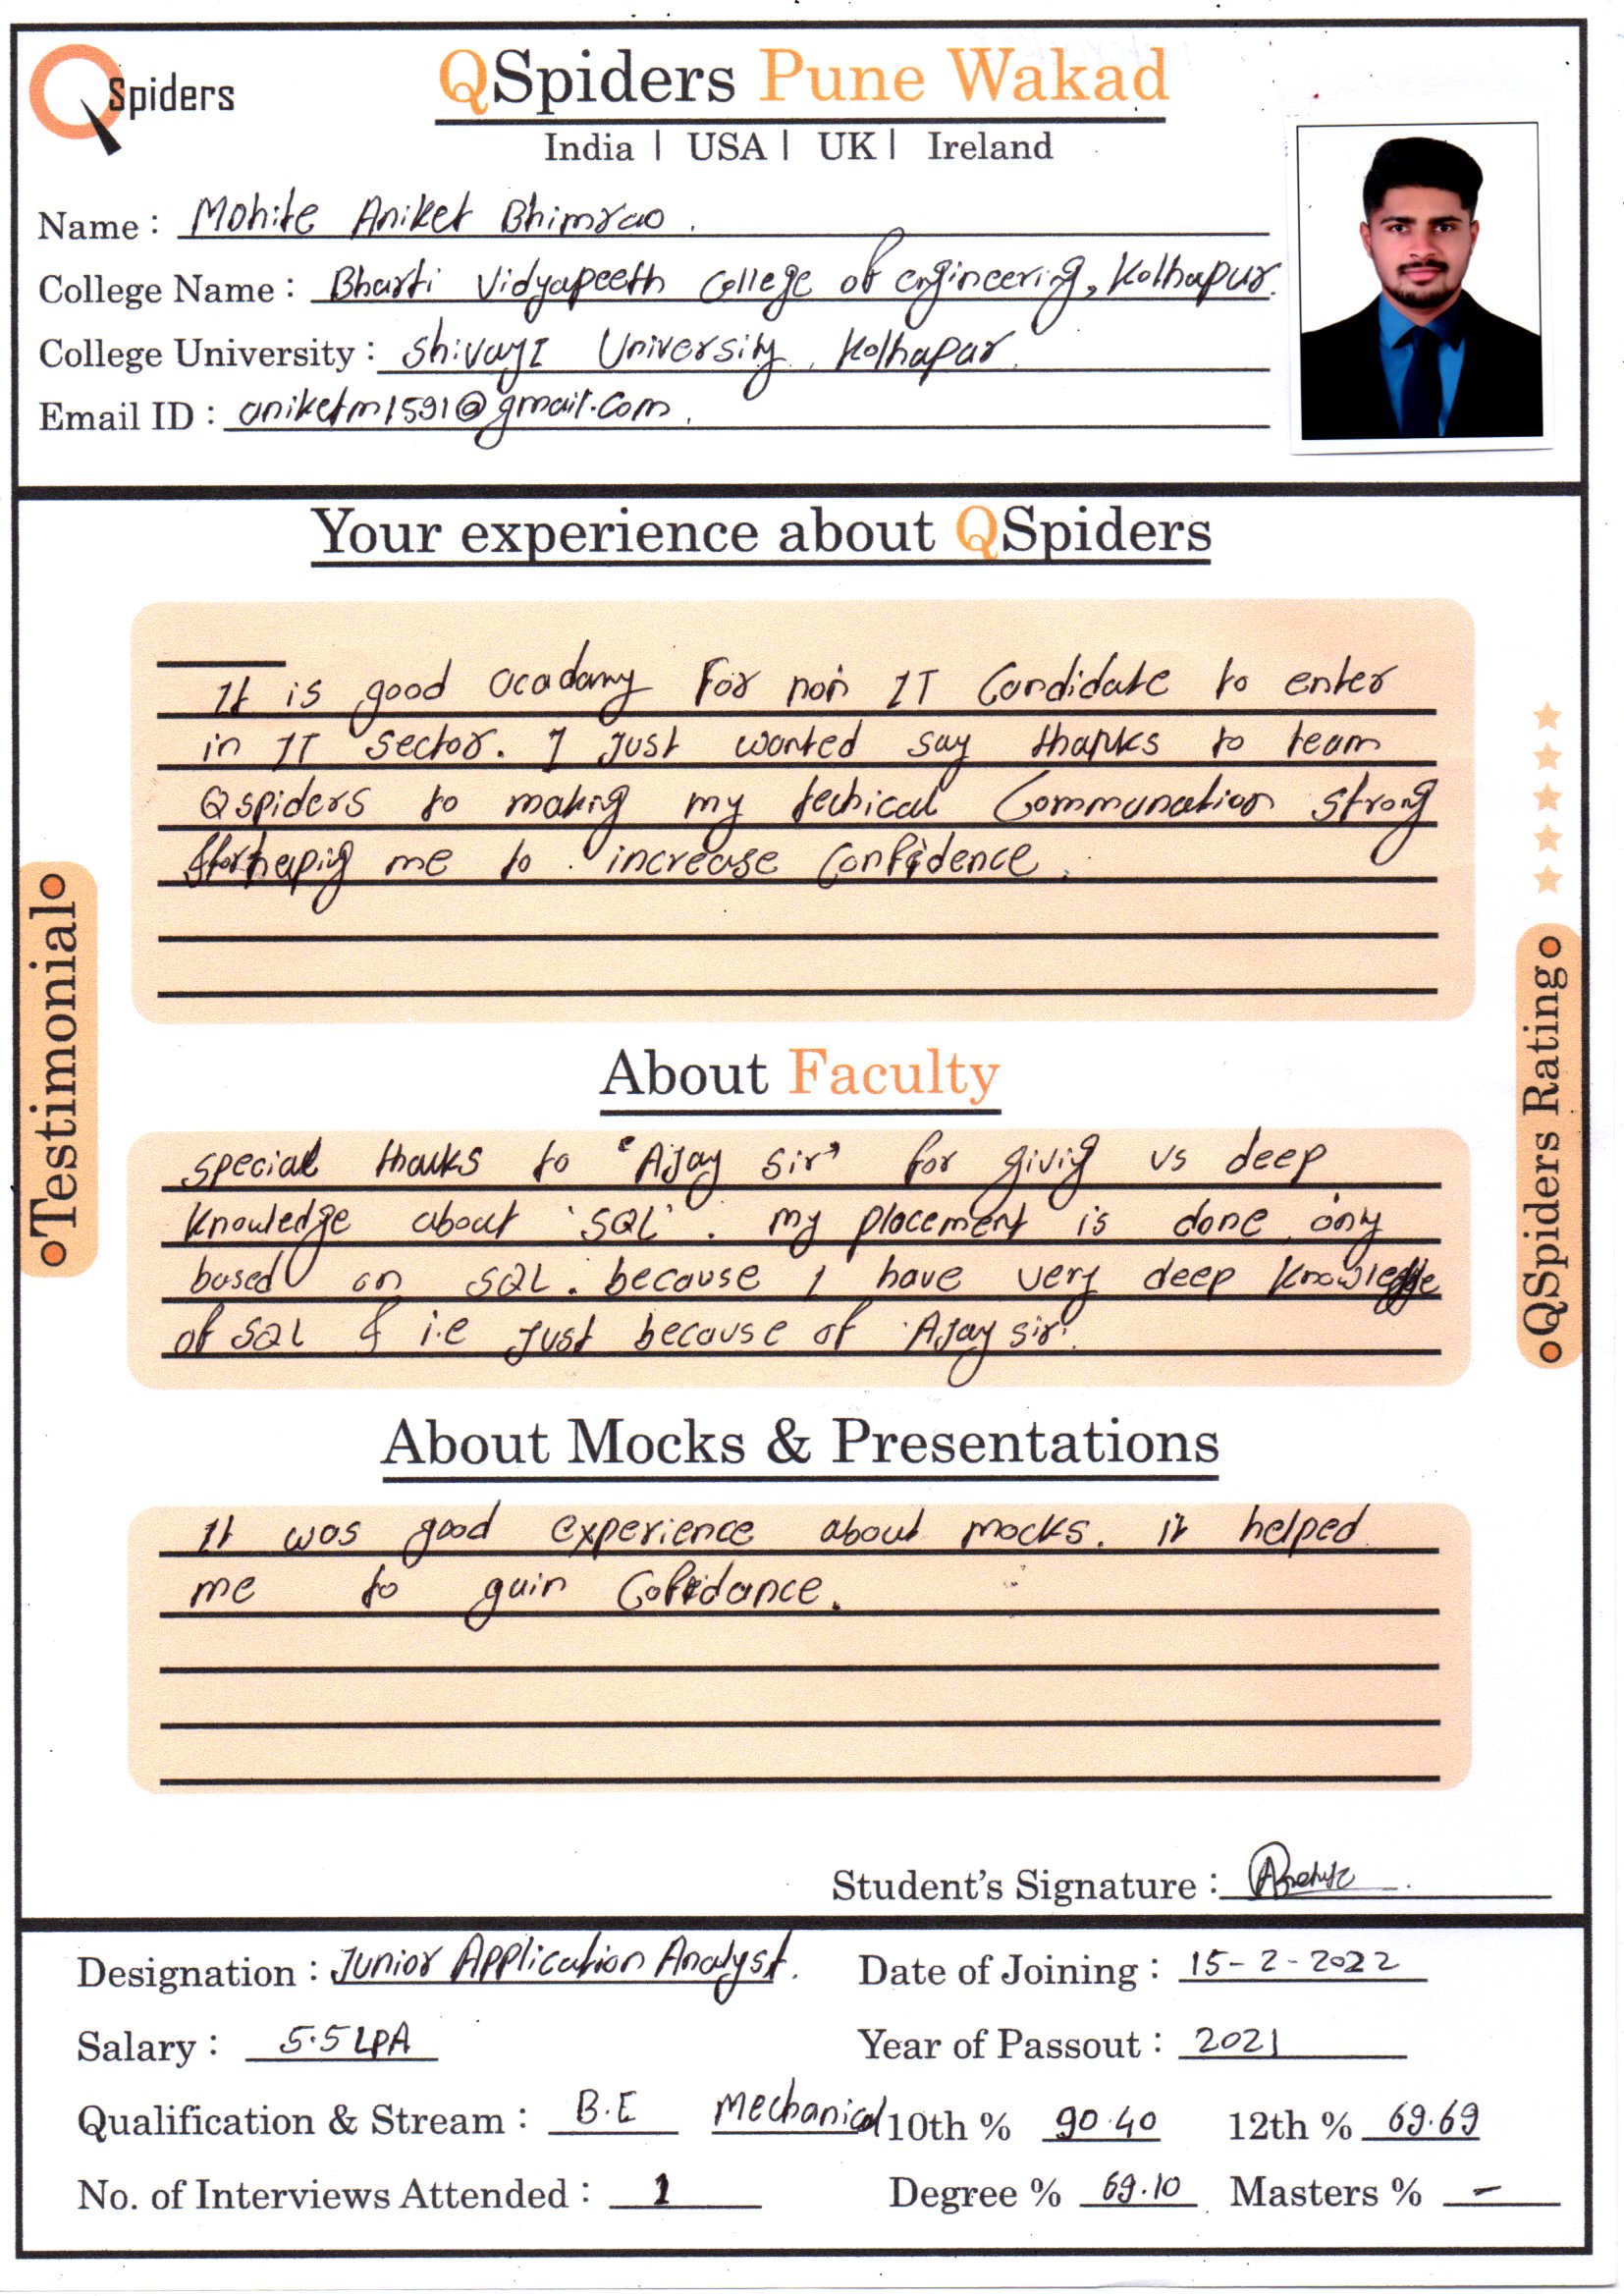 QSpiders
QSpiders Pune Wakad
India | USA | UK | Ireland
Name : Mohite Aniket Bhimrao .
College Name : Bharti Vidyapeeth College of engineering, Kolhapur.
College University : Shivaji University, Kolhapur.
Email ID : aniketm1591@gmail.com .
Your experience about QSpiders
It is good acadamy For non IT Candidate to enter
in IT sector. I Just wanted say thanks to team
Qspiders to making my techical Communation strong
helping me to increase Confidence .
Testimonial
QSpiders Rating
About Faculty
special thanks to "AJay sir" for givig us deep
knowledge about 'SQL' . my placement is done only
based on SQL . because I have very deep knowledge
of SQL & i.e Just because of 'AJay sir'.
About Mocks & Presentations
It was good experience about mocks. it helped
me to gain Cofidance .
Student's Signature :
Designation : Junior Application Analyst. Date of Joining : 15-2-2022
Salary : 5.5 LPA Year of Passout : 2021
Qualification & Stream : B.E Mechanical 10th % 90.40 12th % 69.69
No. of Interviews Attended : 1 Degree % 69.10 Masters % -